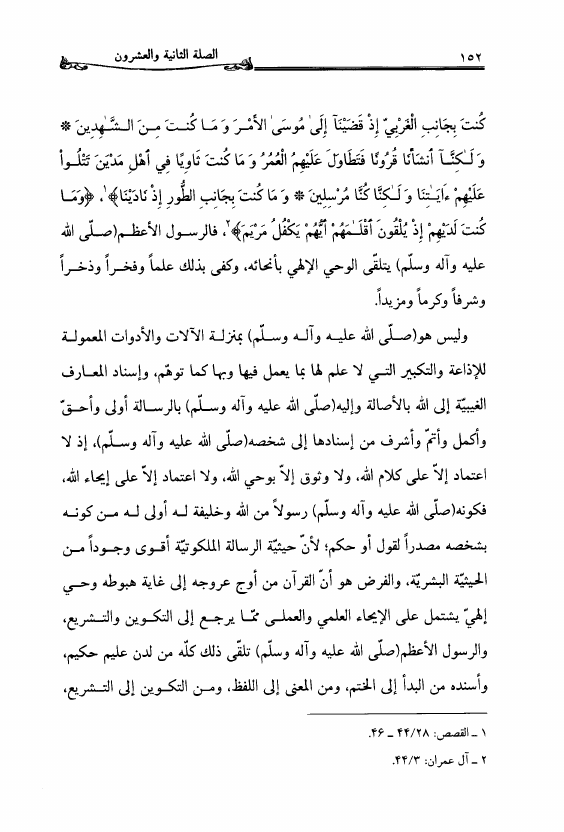 ١٥٢ الصلة الثانية والعشرون
كُنتَ بِجَانِبِ الْغَرْبِيِّ إِذْ قَضَيْنَآ إِلَىٰ مُوسَى الأَمْرَ وَ مَا كُنـتَ مِـنَ الـشَّـٰهِدِينَ *
وَ لَـٰكِنَّـآ أَنشَأنَا قُرُونًا فَتَطَاوَلَ عَلَيْهِمُ الْعُمُرُ وَ مَا كُنتَ ثَاوِيًا فِي أَهْلِ مَدْيَنَ تَتْلُـواْ
عَلَيْهِمْ ءَايَـٰتِنَا وَ لَـٰكِنَّا كُنَّا مُرْسِلِينَ * وَ مَا كُنتَ بِجَانِبِ الطُّورِ إِذْ نَادَيْنَا﴾١، ﴿وَمَـا
كُنتَ لَدَيْهِمْ إِذْ يُلْقُونَ أَقْلَـٰمَهُمْ أَيُّهُمْ يَكْفُلُ مَرْيَمَ﴾٢، فالرسول الأعظم(صـلّى الله
عليه وآله وسلّم) يتلقّى الوحي الإلهي بأنحائه، وكفى بذلك علماً وفخـراً وذخـراً
وشرفاً وكرماً ومزيداً.
وليس هو(صـلّى الله عليـه وآلـه وسـلّم) بمنزلـة الآلات والأدوات المعمولـة
للإذاعة والتكبير التـي لا علم لها بما يعمل فيها وبها كما توهّم، وإسناد المعـارف
الغيبيّة إلى الله بالأصالة وإليه(صلّى الله عليه وآله وسلّم) بالرسالة أولى وأحـقّ
وأكمل وأتمّ وأشرف من إسنادها إلى شخصه(صلّى الله عليه وآله وسـلّم)، إذ لا
اعتماد إلاّ على كلام الله، ولا وثوق إلاّ بوحي الله، ولا اعتماد إلاّ على إيحاء الله،
فكونه(صلّى الله عليه وآله وسلّم) رسولاً من الله وخليفة لـه أولى لـه مـن كونـه
بشخصه مصدراً لقول أو حكم؛ لأنّ حيثيّة الرسالة الملكوتيّة أقوى وجـوداً مـن
الحيثيّة البشريّة، والفرض هو أنّ القرآن من أوج عروجه إلى غاية هبوطه وحـي
إلهيّ يشتمل على الإيحاء العلمي والعملـي ممّـا يرجـع إلى التكـوين والتـشريع،
والرسول الأعظم(صلّى الله عليه وآله وسلّم) تلقّى ذلك كلّه من لدن عليم حكيم،
وأسنده من البدأ إلى الختم، ومن المعنى إلى اللفظ، ومـن التكـوين إلى التـشريع،
١ ـ القصص: ٤٤/٢٨ ـ ٤۶.
٢ ـ آل عمران: ٤٤/٣.